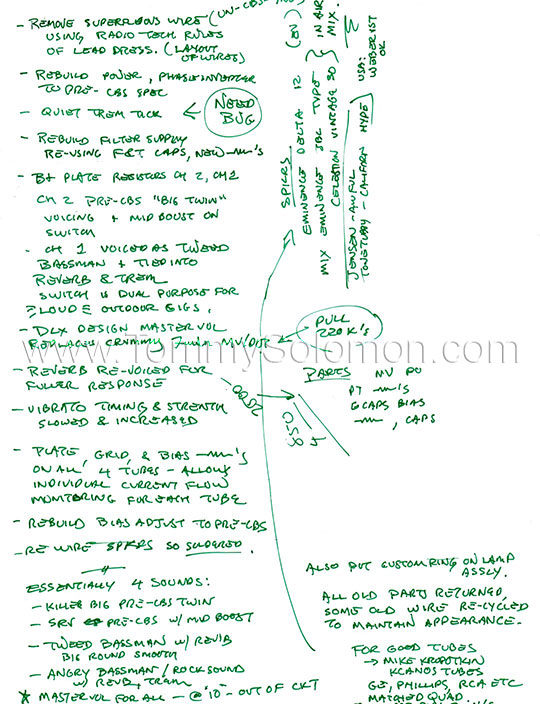 - REMOVE SUPERFLUOUS WIRE (UN-CBS
USING RADIO TECH RULES
OF LEAD DRESS. (LAYOUT
OF WIRES)
- REBUILD POWER, PHASE INVERTER
TO PRE-CBS SPEC
- QUIET TREM TICK
NEED
BUG
- REBUILD FILTER SUPPLY
RE-USING F&T CAPS, NEW 's
- B+ PLATE RESISTORS CH 2, CH 1
CH 2 PRE-CBS "BIG TWIN"
VOICING + MID BOOST ON
SWITCH
- CH 1 VOICED AS TWEED
BASSMAN + TIED INTO
REVERB & TREM
SWITCH IS DUAL PURPOSE FOR
LOUD OUTDOOR GIGS.
- DLX DESIGN MASTER VOL
REPLACES CRUMMY MV/DIST
- REVERB RE-VOICED FOR
FULLER RESPONSE
- VIBRATO TIMING & STRENGTH
SLOWED & INCREASED
- PLATE, GRID, & BIAS 's
ON ALL 4 TUBES - ALLOWS
INDIVIDUAL CURRENT FLOW
MONITORING FOR EACH TUBE
- REBUILD BIAS ADJUST TO PRE-CBS
- RE WIRE SPKRS SO SOLDERED.
ESSENTIALLY 4 SOUNDS:
- KILLER BIG PRE-CBS TWIN
- SRV PRE-CBS W/ MID BOOST
- TWEED BASSMAN W/ REVB
BIG ROUND SMOOTH
- ANGRY BASSMAN / ROCK SOUND
W/ REVB, TREM
* MASTER VOL FOR ALL - @ "10" - OUT OF CKT
SPKRS
EMINENCE DELTA 12 (EN)
MIX EMINENCE JBL TYPE
CELESTION VINTAGE 30
IN AIR
MIX.
USA:
WEBER IST
OK
JENSEN - AWFUL
TONETUBBY - CALIFORN HYPE
PULL
220K's
www.TommySolomon.com
PARTS MV PU
PT 's
6CAPS BIAS
, CAPS
2500
850
ALSO PUT CUSTOM RING ON LAMP
ASSLY.
ALL OLD PARTS RETURNED,
SOME OLD WIRE RE-CYCLED
TO MAINTAIN APPEARANCE.
FOR GOOD TUBES
→ MIKE KROPOTKIN
KCANOS TUBES
GE, PHILLIPS, RCA ETC
MATCHED QUAD